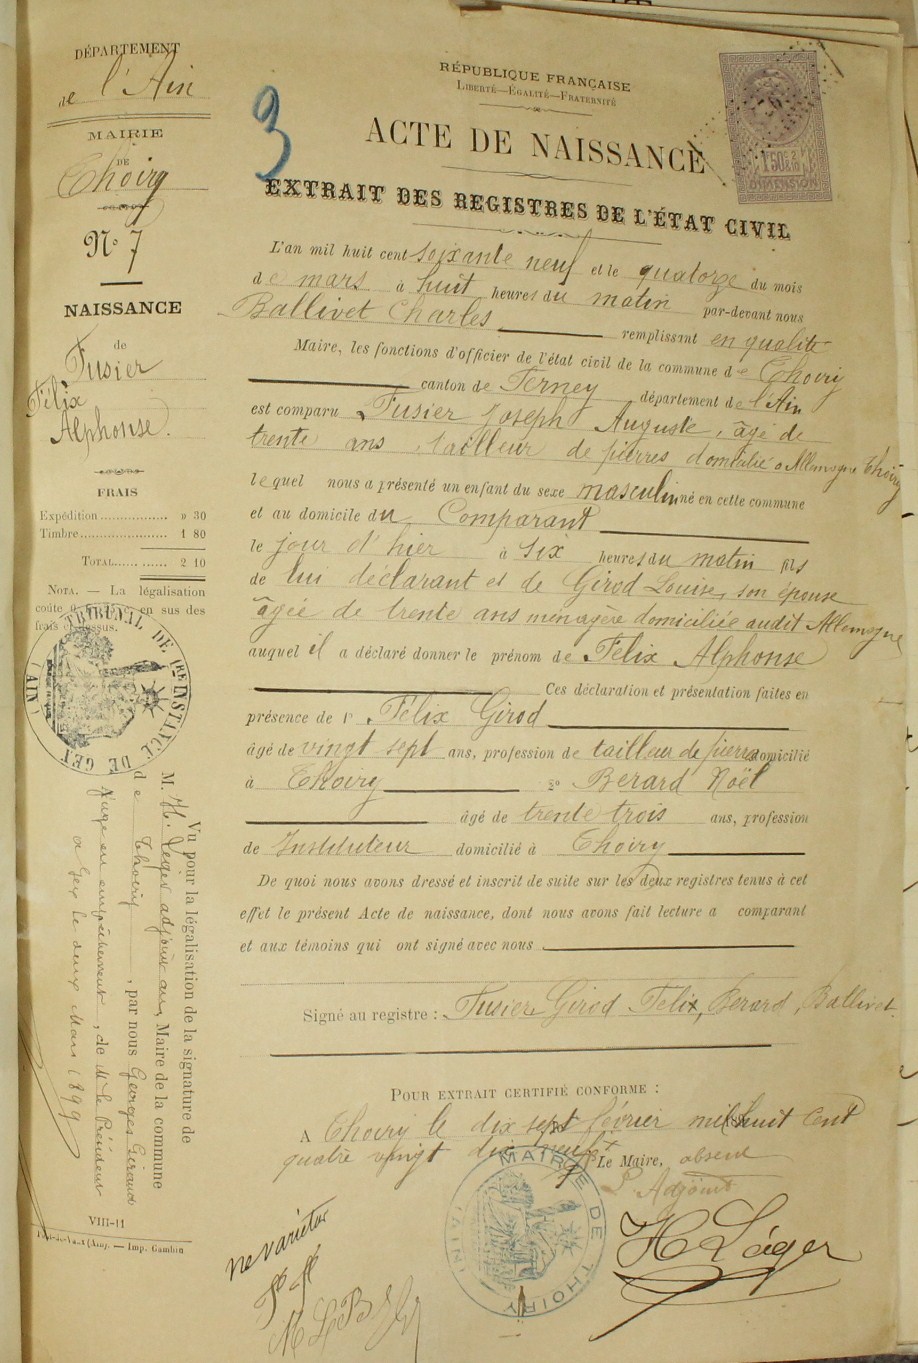 DÉPARTEMENT
de l'Ain
MAIRIE
DE
Thoiry
N° 7
NAISSANCE
de
Fusier
Félix
Alphonse.
FRAIS
Expédition................ » 30
Timbre..................... 1 80
TOTAL............ 2 10
NOTA. — La légalisation
coûte en sus des
frais ci-dessus.
TRIBUNAL DE 1RE INSTANCE DE GEX
(AIN)
Vu pour la légalisation de la signature de
M. H. Léger adjoint au Maire de la commune
de Thoiry, par nous Georges Giraud
Juge en empêchement, de Mr le Président
a Gex le deux Mars 1899
VIII-11
(Ain). — Imp. Gambin
3
RÉPUBLIQUE FRANÇAISE
LIBERTÉ—ÉGALITÉ—FRATERNITÉ
ACTE DE NAISSANCE
EXTRAIT DES REGISTRES DE L'ÉTAT CIVIL
1F50c
DIMENSION
L'an mil huit cent soixante neuf et le quatorze du mois
de mars à huit heures du matin par-devant nous
Ballivet Charles remplissant en qualité
Maire, les fonctions d'officier de l'état civil de la commune de Thoiry
canton de Ferney département de l'Ain
est comparu Fusier Joseph Auguste, âgé de
trente ans, tailleur de pierres domicilié à Allemogne Thoiry
lequel nous a présenté un enfant du sexe masculin né en cette commune
et au domicile du Comparant
le jour d'hier à six heures du matin fils
de lui déclarant et de Girod Louise, son épouse
âgée de trente ans ménagère domiciliée audit Allemogne
auquel il a déclaré donner le prénom de Félix Alphonse
Ces déclaration et présentation faites en
présence de 1° Félix Girod
âgé de vingt sept ans, profession de tailleur de pierres domicilié
à Thoiry 2° Berard Noël
âgé de trente trois ans, profession
de Instituteur domicilié à Thoiry
De quoi nous avons dressé et inscrit de suite sur les deux registres tenus à cet
effet le présent Acte de naissance, dont nous avons fait lecture a comparant
et aux témoins qui ont signé avec nous
Signé au registre : Fusier Girod Félix, Berard, Ballivet
POUR EXTRAIT CERTIFIÉ CONFORME :
A Thoiry le dix sept février mil huit cent
quatre vingt dix neuf
Le Maire, absent
L'Adjoint
H Léger
MAIRIE DE THOIRY
(AIN)
ne varietur